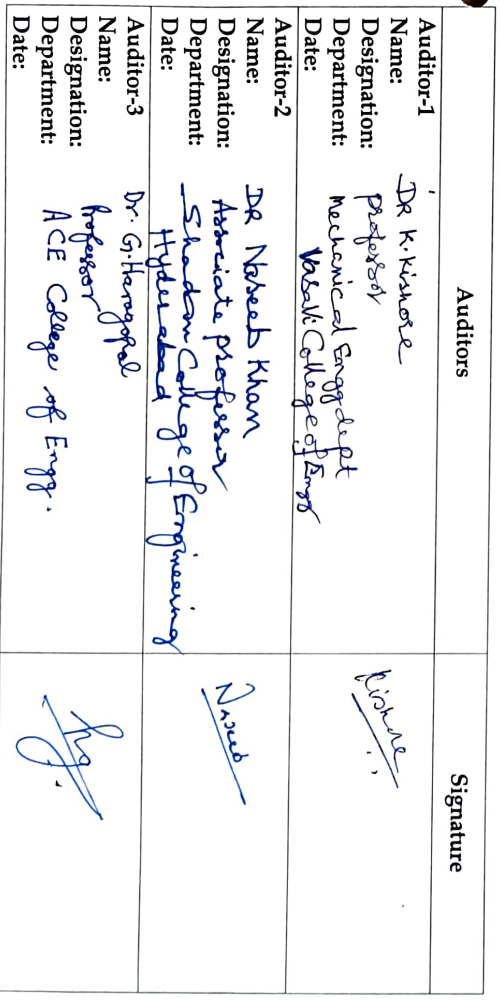 Auditors Signature
Auditor-1
Name: DR K. Kishore
Designation: Professor
Department: Mechanical Engg dept
Date: Vasavi College of Engg
Kishore
Auditor-2
Name: DR Naseeb Khan
Designation: Associate professor
Department: Shadan College of Engineering
Date: Hyderabad
Naseeb
Auditor-3
Name: Dr. G. Haragopal
Designation: Professor
Department: ACE College of Engg.
Date: